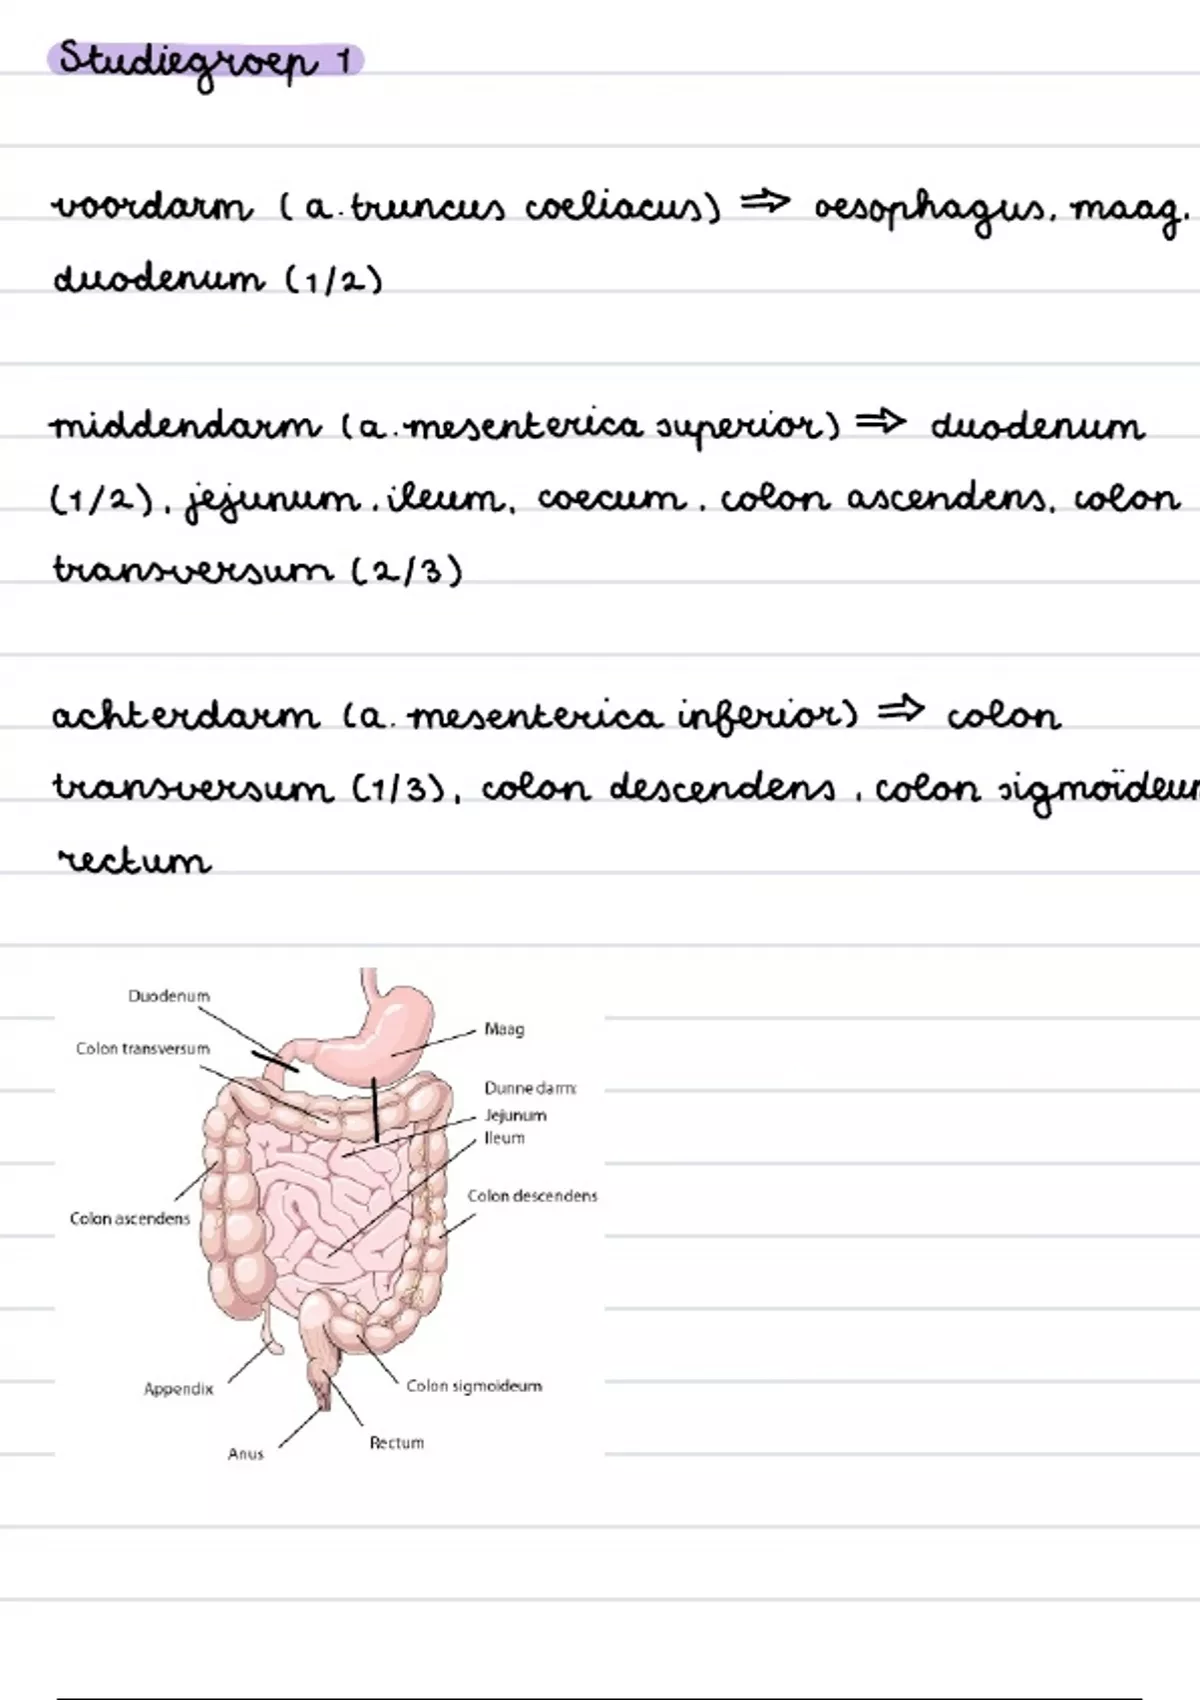 Studiegroep 1
voordarm (a. truncus coeliacus) ⇒ oesophagus, maag,
duodenum (1/2)
middendarm (a. mesenterica superior) ⇒ duodenum
(1/2), jejunum, ileum, coecum, colon ascendens, colon
transversum (2/3)
achterdarm (a. mesenterica inferior) ⇒ colon
transversum (1/3), colon descendens, colon sigmoïdeum
rectum
Duodenum
Maag
Colon transversum
Dunne darm:
Jejunum
Ileum
Colon descendens
Colon ascendens
Appendix
Colon sigmoideum
Rectum
Anus